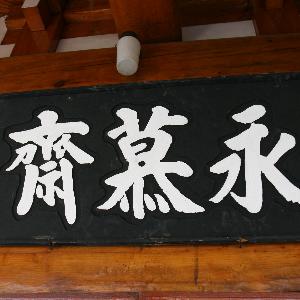 永慕齋